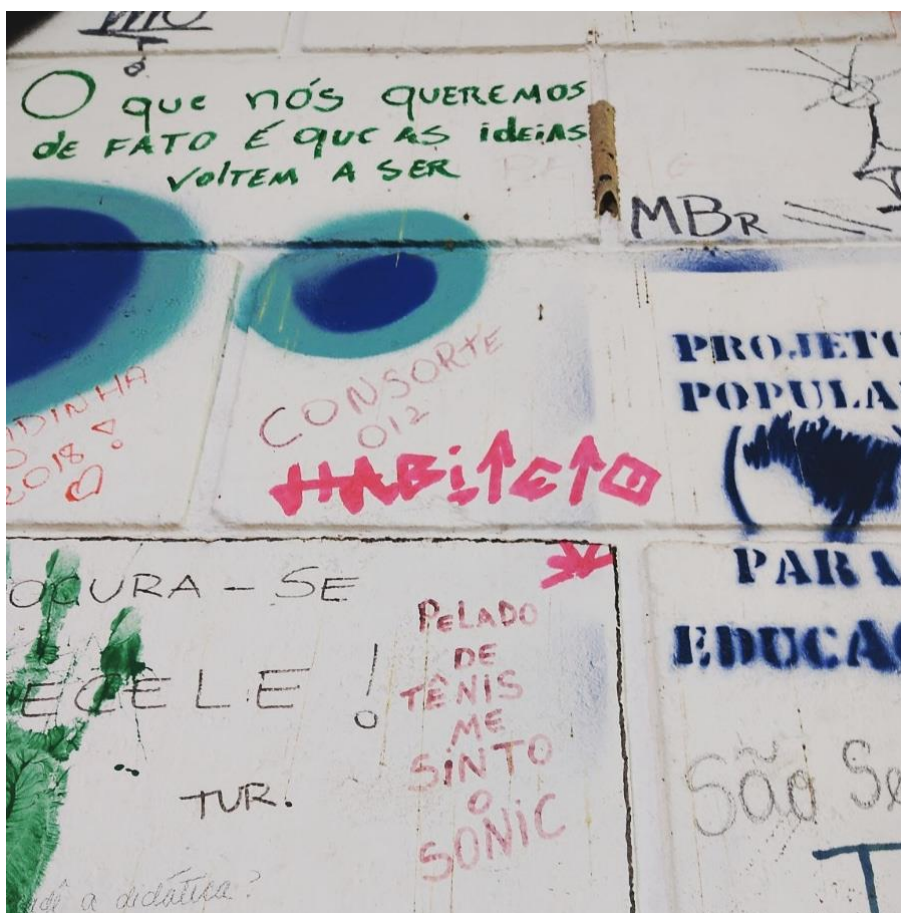 O que nós QUEREMOS
de FATO É QUE AS ideiAS
VOlTEM A SER
MBr
CONSORTE
012
2018!
PROJETO
POPULA
PARA
EDUCAÇ
OCURA - SE
ECELE !
TUR.
PELADO
DE
TÊNIS
ME
SiNTO
O
SONiC
São Se
a didática?